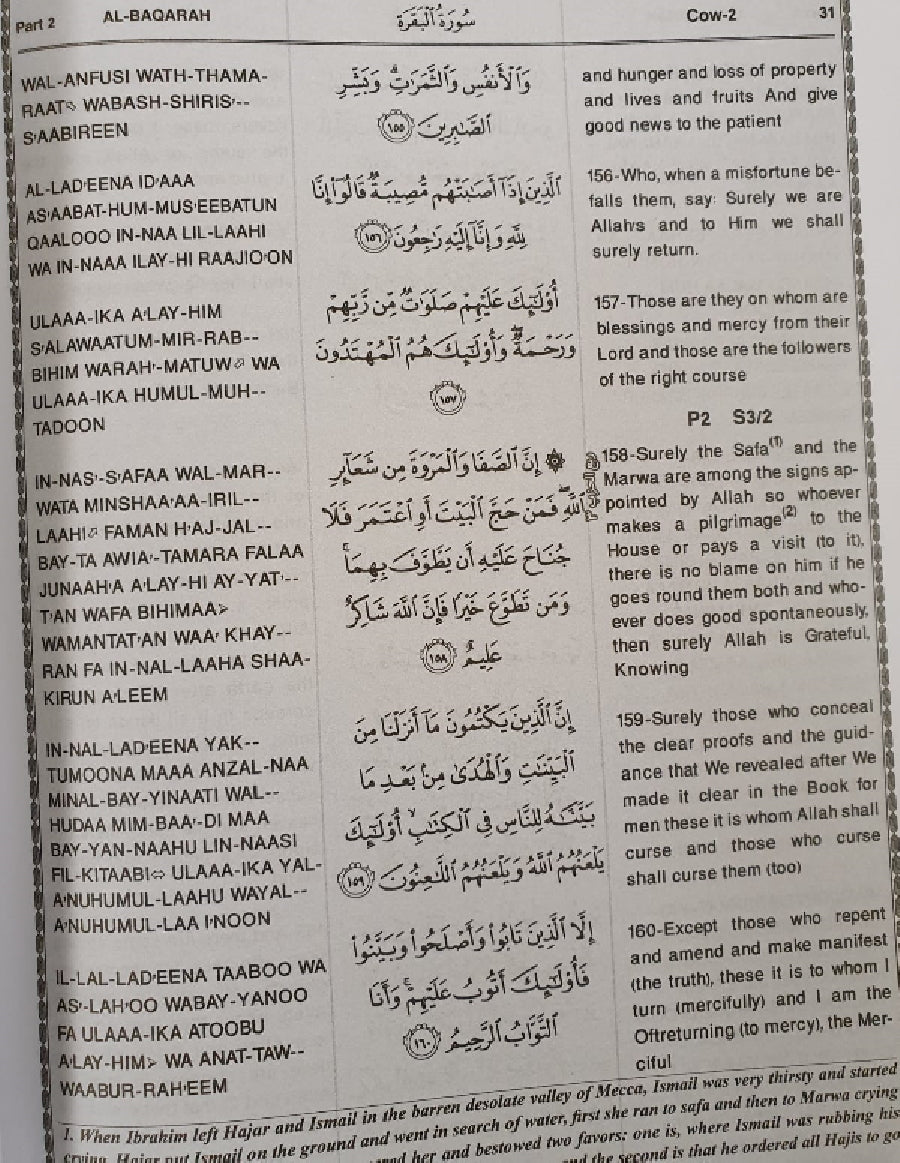 Part 2 AL-BAQARAH سُورَةُ الْبَقَرَةِ Cow-2 31
WAL-ANFUSI WATH-THAMA-
RAAT⇔ WABASH-SHIRIS'--
S'AABIREEN
AL-LAD'EENA ID'AAA
AS'AABAT-HUM-MUS'EEBATUN
QAALOOO IN-NAA LIL-LAAHI
WA IN-NAAA ILAY-HI RAAJIO'ON
ULAAA-IKA A'LAY-HIM
S'ALAWAATUM-MIR-RAB--
BIHIM WARAH'-MATUW WA
ULAAA-IKA HUMUL-MUH--
TADOON
IN-NAS'-S'AFAA WAL-MAR--
WATA MINSHAA'AA-IRIL--
LAAHI FAMAN H'AJ-JAL--
BAY-TA AWIA'-TAMARA FALAA
JUNAAH'A A'LAY-HI AY-YAT'--
T'AN WAFA BIHIMAA>
WAMANTAT'AN WAA' KHAY--
RAN FA IN-NAL-LAAHA SHAA-
KIRUN A'LEEM
IN-NAL-LAD'EENA YAK--
TUMOONA MAAA ANZAL-NAA
MINAL-BAY-YINAATI WAL--
HUDAA MIM-BAA'-DI MAA
BAY-YAN-NAAHU LIN-NAASI
FIL-KITAABI⇔ ULAAA-IKA YAL-
A'NUHUMUL-LAAHU WAYAL--
A'NUHUMUL-LAA I'NOON
IL-LAL-LAD'EENA TAABOO WA
AS'-LAH'OO WABAY-YANOO
FA ULAAA-IKA ATOOBU
A'LAY-HIM> WA ANAT-TAW--
WAABUR-RAH'EEM
وَالْأَنفُسِ وَالثَّمَرَاتِ ۗ وَبَشِّرِ
الصَّابِرِينَ ١٥٥
الَّذِينَ إِذَا أَصَابَتْهُم مُّصِيبَةٌ قَالُوا إِنَّا
لِلَّهِ وَإِنَّا إِلَيْهِ رَاجِعُونَ ١٥٦
أُولَٰئِكَ عَلَيْهِمْ صَلَوَاتٌ مِّن رَّبِّهِمْ
وَرَحْمَةٌ ۖ وَأُولَٰئِكَ هُمُ الْمُهْتَدُونَ
١٥٧
۞ إِنَّ الصَّفَا وَالْمَرْوَةَ مِن شَعَائِرِ
اللَّهِ ۖ فَمَنْ حَجَّ الْبَيْتَ أَوِ اعْتَمَرَ فَلَا
جُنَاحَ عَلَيْهِ أَن يَطَّوَّفَ بِهِمَا ۚ
وَمَن تَطَوَّعَ خَيْرًا فَإِنَّ اللَّهَ شَاكِرٌ
عَلِيمٌ ١٥٨
إِنَّ الَّذِينَ يَكْتُمُونَ مَا أَنزَلْنَا مِنَ
الْبَيِّنَاتِ وَالْهُدَىٰ مِن بَعْدِ مَا
بَيَّنَّاهُ لِلنَّاسِ فِي الْكِتَابِ ۙ أُولَٰئِكَ
يَلْعَنُهُمُ اللَّهُ وَيَلْعَنُهُمُ اللَّاعِنُونَ ١٥٩
إِلَّا الَّذِينَ تَابُوا وَأَصْلَحُوا وَبَيَّنُوا
فَأُولَٰئِكَ أَتُوبُ عَلَيْهِمْ ۚ وَأَنَا
التَّوَّابُ الرَّحِيمُ ١٦٠
and hunger and loss of property
and lives and fruits And give
good news to the patient
156-Who, when a misfortune be-
falls them, say: Surely we are
Allah's and to Him we shall
surely return.
157-Those are they on whom are
blessings and mercy from their
Lord and those are the followers
of the right course
P2 S3/2
158-Surely the Safa(1) and the
Marwa are among the signs ap-
pointed by Allah so whoever
makes a pilgrimage(2) to the
House or pays a visit (to it),
there is no blame on him if he
goes round them both and who-
ever does good spontaneously,
then surely Allah is Grateful,
Knowing
159-Surely those who conceal
the clear proofs and the guid-
ance that We revealed after We
made it clear in the Book for
men these it is whom Allah shall
curse and those who curse
shall curse them (too)
160-Except those who repent
and amend and make manifest
(the truth), these it is to whom I
turn (mercifully) and I am the
Oftreturning (to mercy), the Mer-
ciful
1. When Ibrahim left Hajar and Ismail in the barren desolate valley of Mecca, Ismail was very thirsty and started
crying. Hajar put Ismail on the ground and went in search of water, first she ran to safa and then to Marwa crying
her and bestowed two favors: one is, where Ismail was rubbing his
and the second is that he ordered all Hajis to go